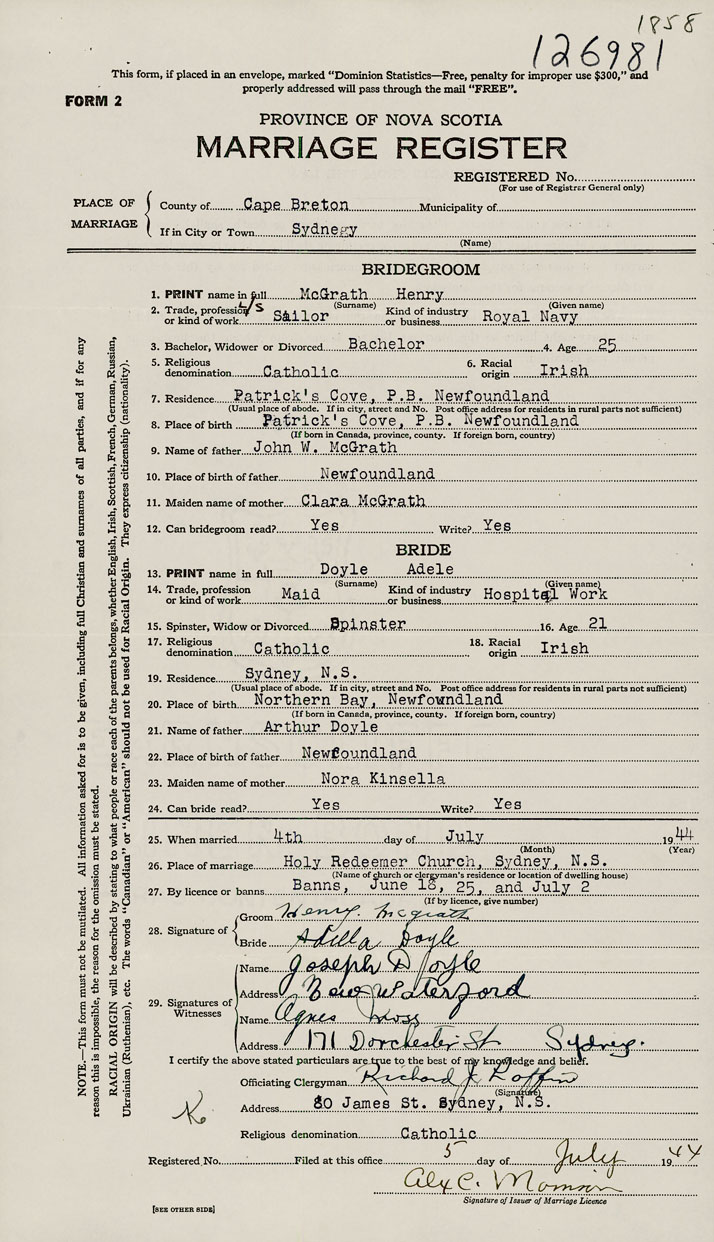 1858
126981
This form, if placed in an envelope, marked "Dominion Statistics—Free, penalty for improper use $300," and
properly addressed will pass through the mail "FREE".
FORM 2
PROVINCE OF NOVA SCOTIA
MARRIAGE REGISTER
REGISTERED No.
(For use of Registrar General only)
PLACE OF MARRIAGE
County of Cape Breton Municipality of
If in City or Town Sydnegy
(Name)
BRIDEGROOM
1. PRINT name in full McGrath Henry
(Surname) (Given name)
2. Trade, profession or kind of work Sailor Kind of industry or business Royal Navy
3. Bachelor, Widower or Divorced Bachelor 4. Age 25
5. Religious denomination Catholic 6. Racial origin Irish
7. Residence Patrick's Cove, P.B. Newfoundland
(Usual place of abode. If in city, street and No. Post office address for residents in rural parts not sufficient)
8. Place of birth Patrick's Cove, P.B. Newfoundland
(If born in Canada, province, county. If foreign born, country)
9. Name of father John W. McGrath
10. Place of birth of father Newfoundland
11. Maiden name of mother Clara McGrath
12. Can bridegroom read? Yes Write? Yes
BRIDE
13. PRINT name in full Doyle Adele
(Surname) (Given name)
14. Trade, profession or kind of work Maid Kind of industry or business Hospital Work
15. Spinster, Widow or Divorced Spinster 16. Age 21
17. Religious denomination Catholic 18. Racial origin Irish
19. Residence Sydney, N.S.
(Usual place of abode. If in city, street and No. Post office address for residents in rural parts not sufficient)
20. Place of birth Northern Bay, Newfoundland
(If born in Canada, province, county. If foreign born, country)
21. Name of father Arthur Doyle
22. Place of birth of father Newfoundland
23. Maiden name of mother Nora Kinsella
24. Can bride read? Yes Write? Yes
25. When married 4th day of July 1944
(Month) (Year)
26. Place of marriage Holy Redeemer Church, Sydney, N.S.
(Name of church or clergyman's residence or location of dwelling house)
27. By licence or banns Banns, June 18, 25, and July 2
(If by licence, give number)
28. Signature of
Groom Henry. Mcgrath
Bride Adella Doyle
29. Signatures of Witnesses
Name Joseph D Joyle
Address New Waterford
Name Agnes
Address 171 Dorchester St Sydney.
I certify the above stated particulars are true to the best of my knowledge and belief.
Officiating Clergyman Richard J
(Signature)
Address 80 James St. Sydney, N.S.
Religious denomination Catholic
Registered No. Filed at this office 5 day of July 1944
Alex C.
Signature of Issuer of Marriage Licence
[SEE OTHER SIDE]
NOTE.—This form must not be mutilated. All information asked for is to be given, including full Christian and surnames of all parties, and if for any
reason this is impossible, the reason for the omission must be stated.
RACIAL ORIGIN will be described by stating to what people or race each of the parents belongs, whether English, Irish, Scottish, French, German, Russian,
Ukrainian (Ruthenian), etc. The words "Canadian" or "American" should not be used for Racial Origin. They express citizenship (nationality).